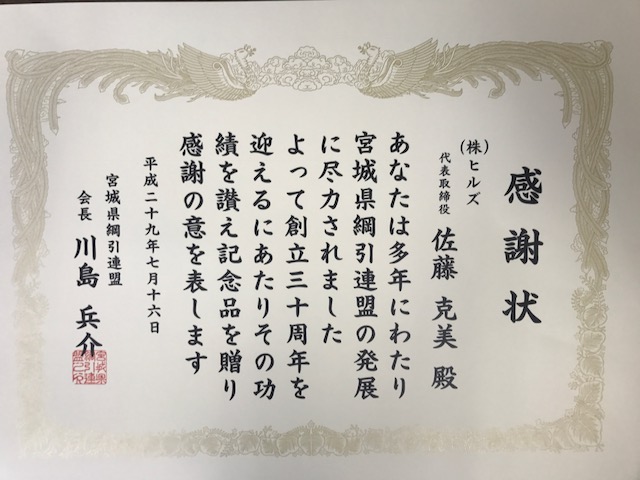 感謝状
(株)ヒルズ
代表取締役 佐藤 克美 殿
あなたは多年にわたり
宮城県綱引連盟の発展
に尽力されました
よって創立三十周年を
迎えるにあたりその功
績を讃え記念品を贈り
感謝の意を表します
平成二十九年七月十六日
宮城県綱引連盟
会長 川島 兵介